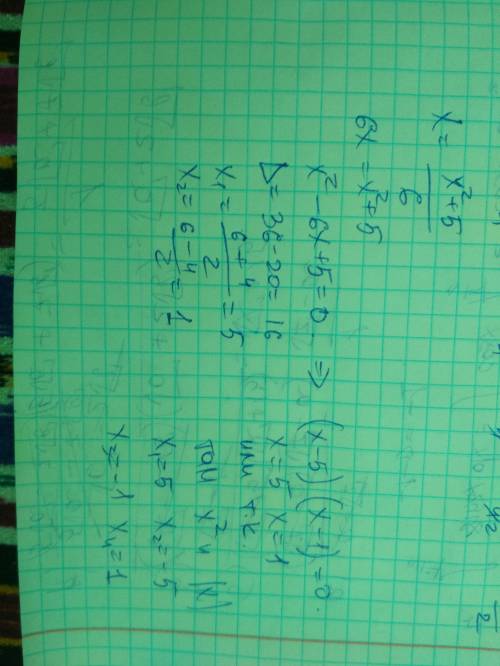 x = x²+5 / 6
6x = x²+5
x² - 6x + 5 = 0 ⇒ (x-5)(x-1) = 0.
Δ = 36 - 20 = 16 x = 5 x = 1
x₁ = 6+4 / 2 = 5 или т.к.
x₂ = 6-4 / 2 = 1 там x² и |x|
x₁ = 5 x₂ = -5
x₃ = -1 x₄ = 1